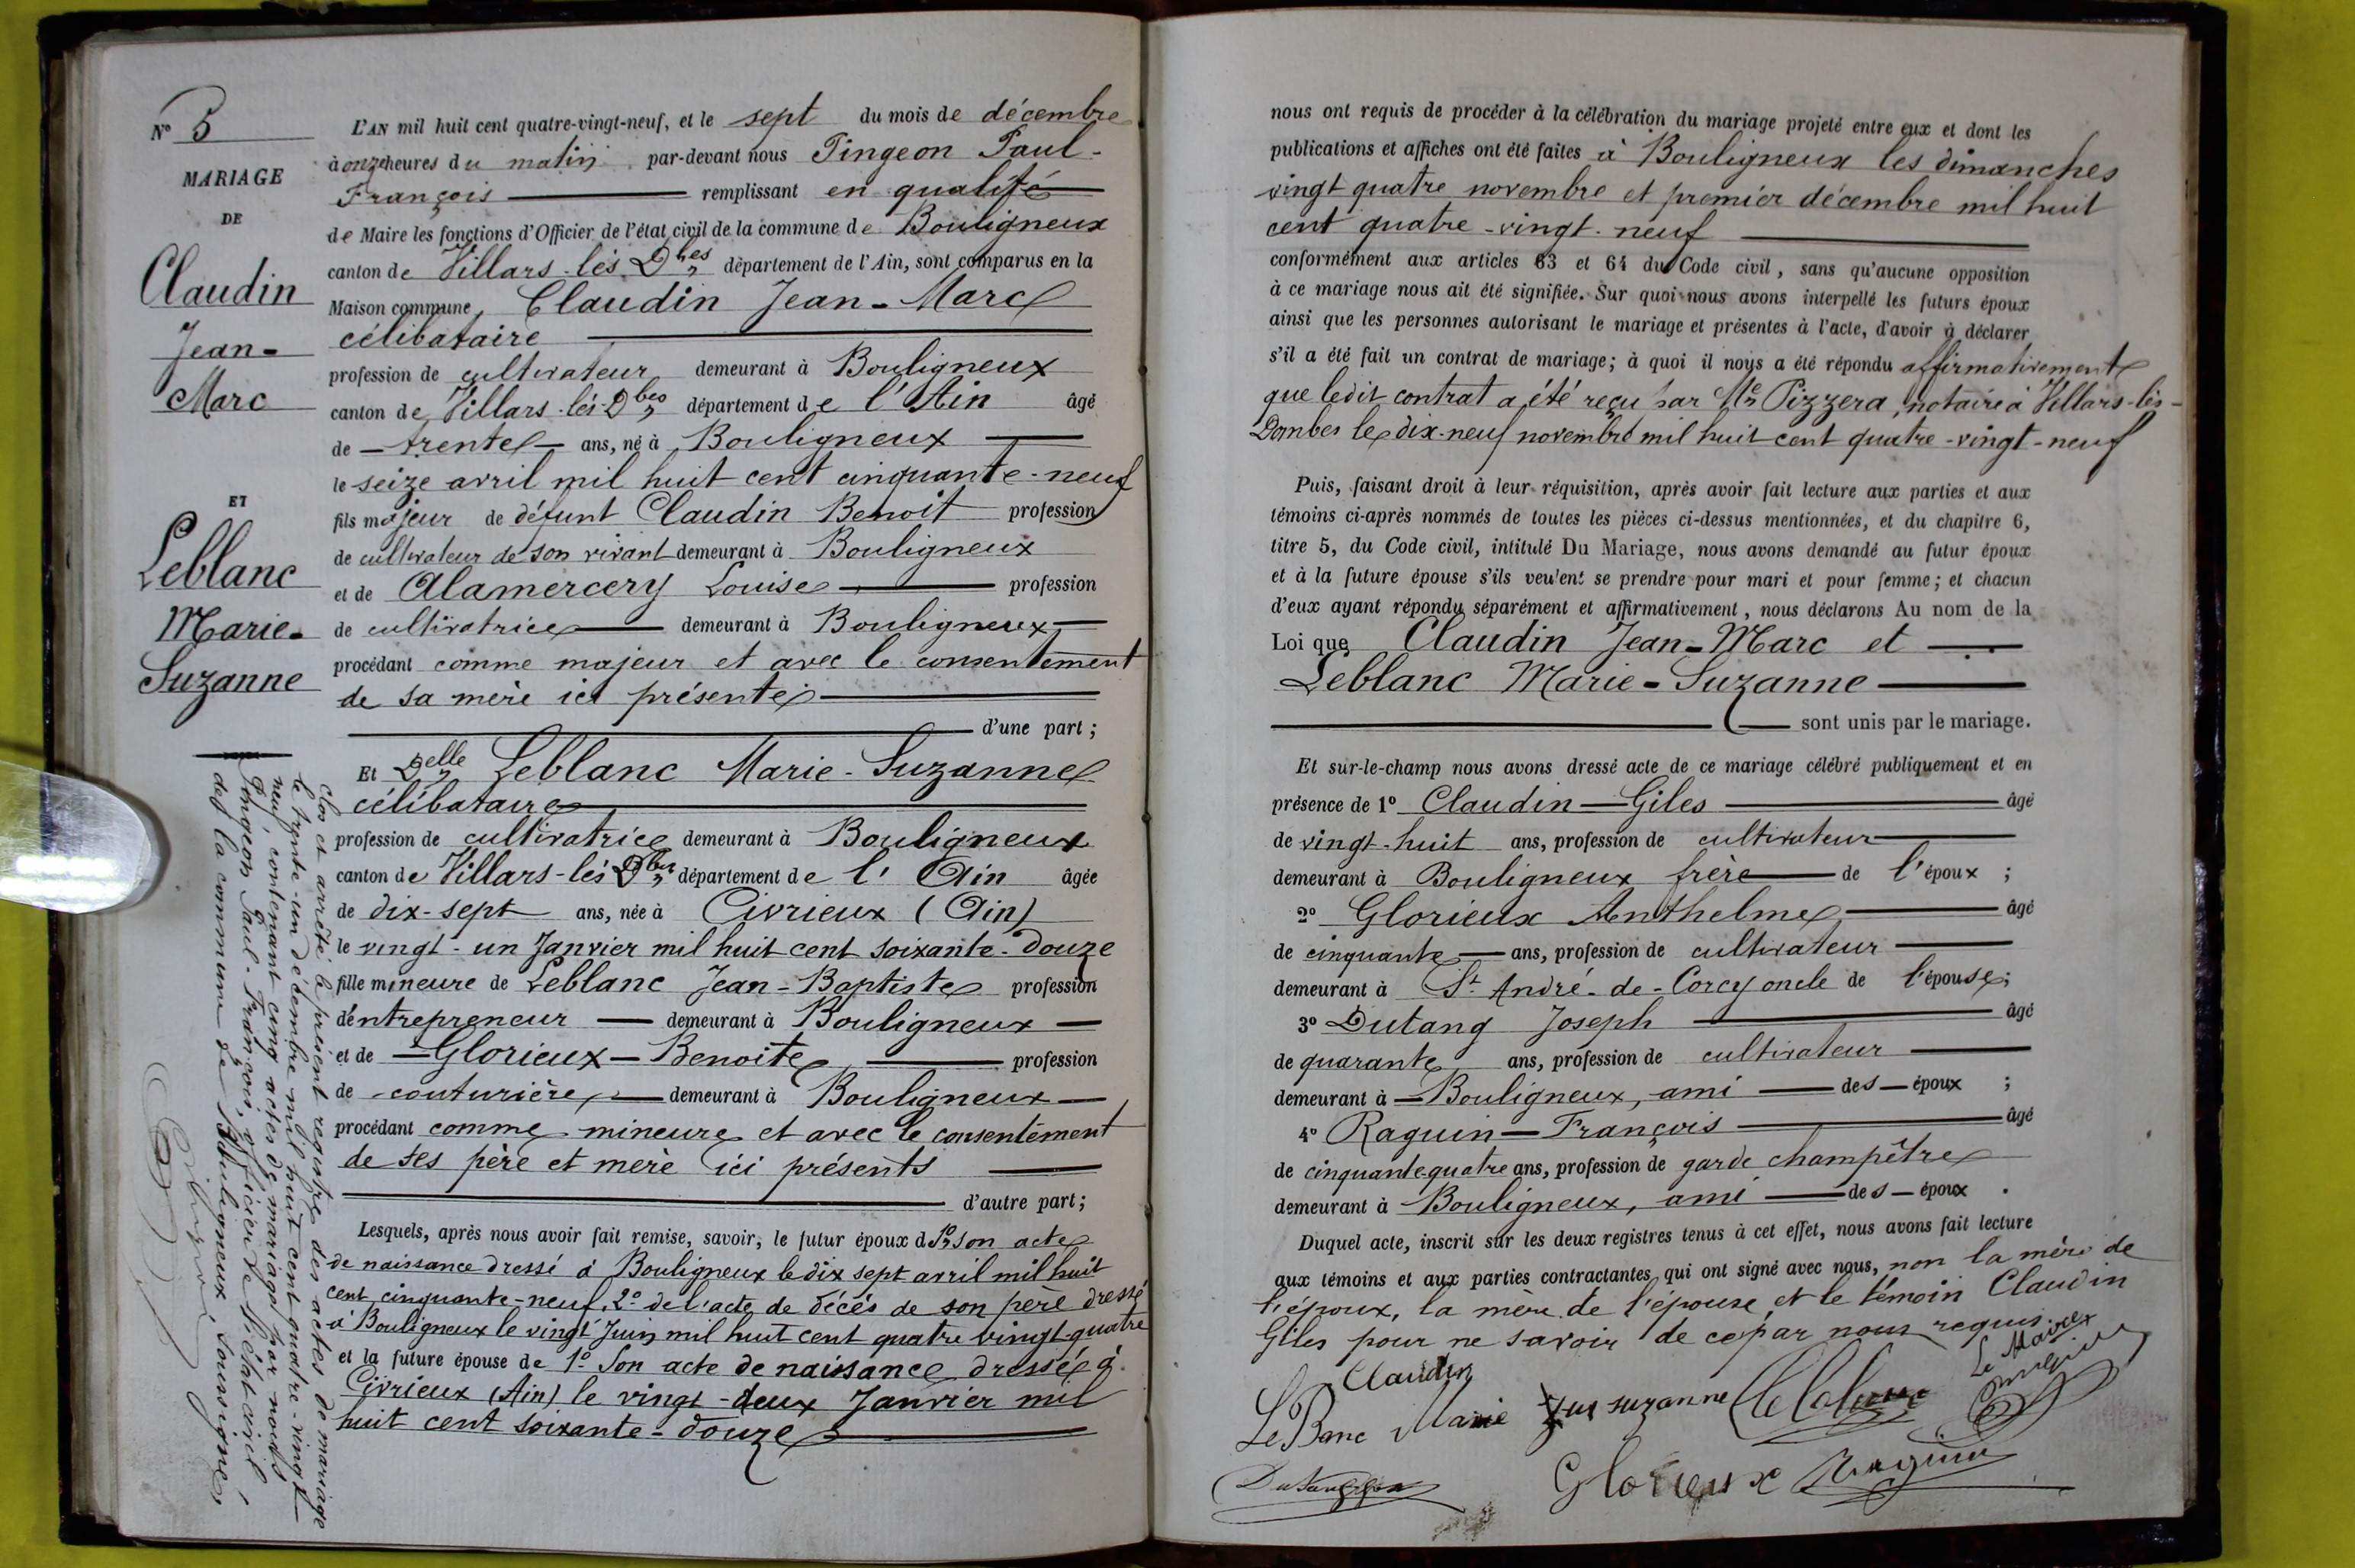 N° 5
MARIAGE
DE
Claudin
Jean-
Marc
ET
Leblanc
Marie-
Suzanne
L'AN mil huit cent quatre-vingt-neuf, et le sept du mois de décembre
à onze heures du matin par-devant nous Pingeon Paul-
François remplissant en qualité
de Maire les fonctions d'Officier de l'état civil de la commune de Bouligneux
canton de Villars-lès-Dbes département de l'Ain, sont comparus en la
Maison commune, Claudin Jean-Marc
célibataire
profession de cultivateur demeurant à Bouligneux
canton de Villars-lès-Dbes département de l'Ain âgé
de trente ans, né à Bouligneux
le seize avril mil huit cent cinquante-neuf
fils majeur de défunt Claudin Benoit profession
de cultivateur de son vivant demeurant à Bouligneux
et de Alamercery Louise profession
de cultivatrice demeurant à Bouligneux
procédant comme majeur et avec le consentement
de sa mère ici présente
d'une part ;
Et Delle Leblanc Marie-Suzanne
célibataire
profession de cultivatrice demeurant à Bouligneux
canton de Villars-lès-Dbes département de l'Ain âgée
de dix-sept ans, née à Civrieux (Ain)
le vingt-un Janvier mil huit cent soixante-douze
fille mineure de Leblanc Jean-Baptiste profession
d'entrepreneur demeurant à Bouligneux
et de Glorieux Benoite profession
de couturière demeurant à Bouligneux
procédant comme mineure et avec le consentement
de ses père et mère ici présents
d'autre part ;
Lesquels, après nous avoir fait remise, savoir, le futur époux d 1° son acte
de naissance dressé à Bouligneux le dix sept avril mil huit
cent cinquante-neuf, 2° de l'acte de décès de son père dressé
à Bouligneux le vingt Juin mil huit cent quatre vingt-quatre
et la future épouse de 1° Son acte de naissance dressé à
Civrieux (Ain) le vingt-deux Janvier mil
huit cent soixante-douze
clos et arrêté le présent registre des actes de mariage
le trente-un décembre mil huit cent quatre-vingt-
neuf, contenant cinq actes de mariage par nous
Pingeon Paul-François, officier de l'état civil
de la commune de Bouligneux, soussigné,
nous ont requis de procéder à la célébration du mariage projeté entre eux et dont les
publications et affiches ont été faites à Bouligneux les dimanches
vingt quatre novembre et premier décembre mil huit
cent quatre-vingt-neuf
conformément aux articles 63 et 64 du Code civil, sans qu'aucune opposition
à ce mariage nous ait été signifiée. Sur quoi nous avons interpellé les futurs époux
ainsi que les personnes autorisant le mariage et présentes à l'acte, d'avoir à déclarer
s'il a été fait un contrat de mariage; à quoi il nous a été répondu affirmativement
que ledit contrat a été reçu par Me Pizzera, notaire à Villars-lès-
Dombes le dix-neuf novembre mil huit cent quatre-vingt-neuf
Puis, faisant droit à leur réquisition, après avoir fait lecture aux parties et aux
témoins ci-après nommés de toutes les pièces ci-dessus mentionnées, et du chapitre 6,
titre 5, du Code civil, intitulé Du Mariage, nous avons demandé au futur époux
et à la future épouse s'ils veulent se prendre pour mari et pour femme; et chacun
d'eux ayant répondu séparément et affirmativement, nous déclarons Au nom de la
Loi que Claudin Jean-Marc et
Leblanc Marie-Suzanne
sont unis par le mariage.
Et sur-le-champ nous avons dressé acte de ce mariage célébré publiquement et en
présence de 1° Claudin Giles âgé
de vingt-huit ans, profession de cultivateur
demeurant à Bouligneux frère de l'époux ;
2° Glorieux Anthelme âgé
de cinquante ans, profession de cultivateur
demeurant à St André-de-Corcy oncle de l'épouse;
3° Dutang Joseph âgé
de quarante ans, profession de cultivateur
demeurant à Bouligneux, ami des époux ;
4° Raguin François âgé
de cinquante-quatre ans, profession de garde champêtre
demeurant à Bouligneux, ami des époux .
Duquel acte, inscrit sur les deux registres tenus à cet effet, nous avons fait lecture
aux témoins et aux parties contractantes qui ont signé avec nous, non la mère de
l'époux, la mère de l'épouse et le témoin Claudin
Giles pour ne savoir de ce par nous requis.
Claudin
Le Maire
LeBanc Marie suzanne
Glorieux Raguin